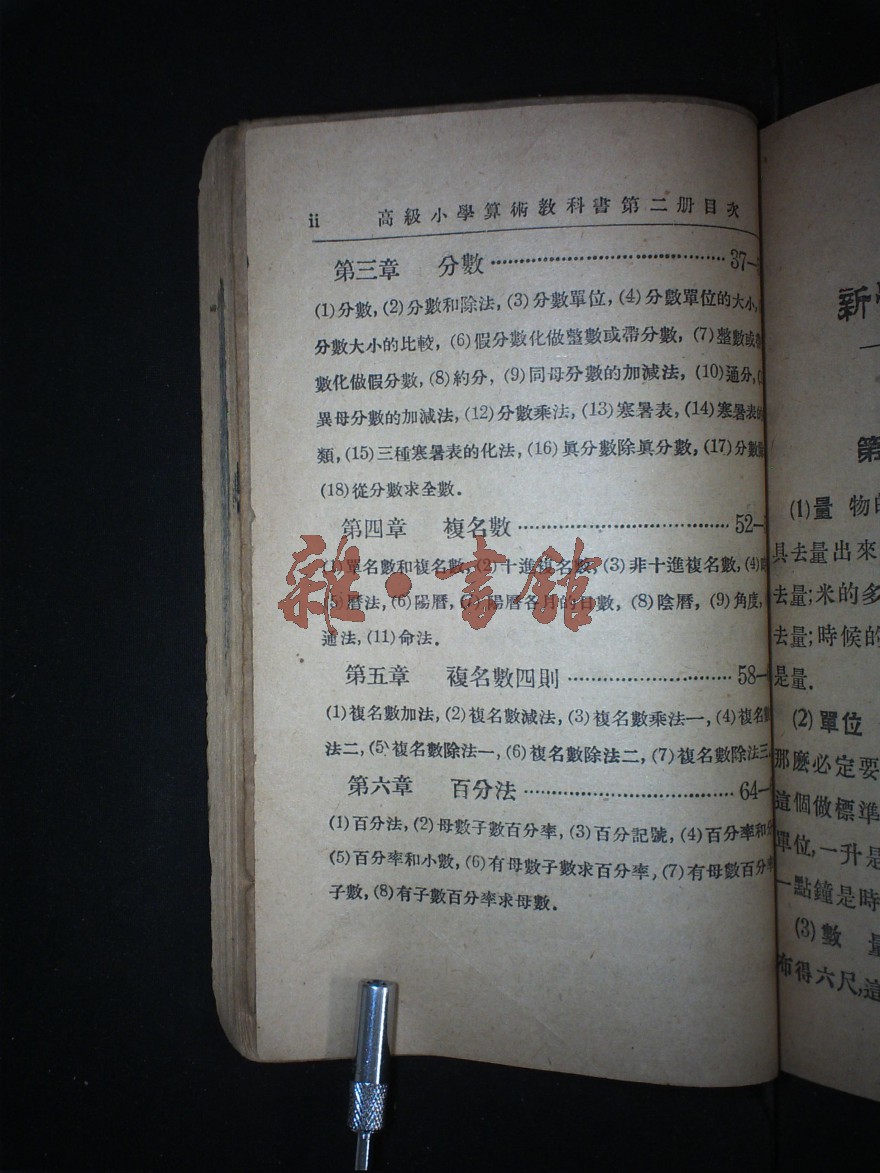 ii 高級小學算術教科書第二册目次
第三章 分數 ……………………………… 37—
(1)分數, (2)分數和除法, (3)分數單位, (4)分數單位的大小,
分數大小的比較, (6)假分數化做整數或帶分數, (7)整數或
數化做假分數, (8)約分, (9)同母分數的加減法, (10)通分,
異母分數的加減法, (12)分數乘法, (13)寒暑表, (14)寒暑表的
類, (15)三種寒暑表的化法, (16)眞分數除眞分數, (17)分數
(18)從分數求全數.
第四章 複名數 ……………………………… 52—
(1)單名數和複名數, (2)十進複名數, (3)非十進複名數, (4)
(5)曆法, (6)陽曆, (7)陽曆各月的日數, (8)陰曆, (9)角度,
通法, (11)命法.
第五章 複名數四則 ……………………… 58—
(1)複名數加法, (2)複名數減法, (3)複名數乘法一, (4)複名
法二, (5)複名數除法一, (6)複名數除法二, (7)複名數除法三
第六章 百分法 ……………………………… 64—
(1)百分法, (2)母數子數百分率, (3)百分記號, (4)百分率和
(5)百分率和小數, (6)有母數子數求百分率, (7)有母數百分率
子數, (8)有子數百分率求母數.
雜·書館
新
第
(1)量 物的
具去量出來
去量; 米的多
去量; 時候的
是量.
(2)單位
那麼必定要
這個做標準
單位, 一升是
一點鐘是時
(3)數 量
布得六尺, 這